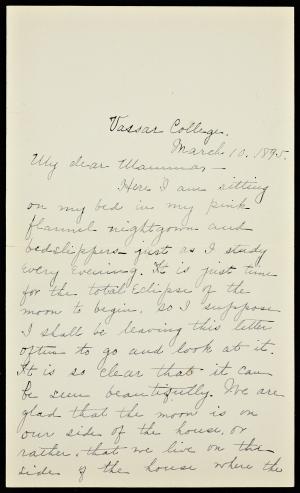 Vassar College.
March 10. 1895.
My dear Mamma -
Here I am sitting
on my bed in my pink
flannel nightgown and
bedslippers - just as I study
every evening. It is just time
for the total Eclipse of the
moon to begin. So I suppose
I shall be leaving this letter
often to go and look at it.
It is so clear that it can
be seen beautifully. We are
glad that the moon is on
our side of the house, or
rather, that we live on the
side of the house where the